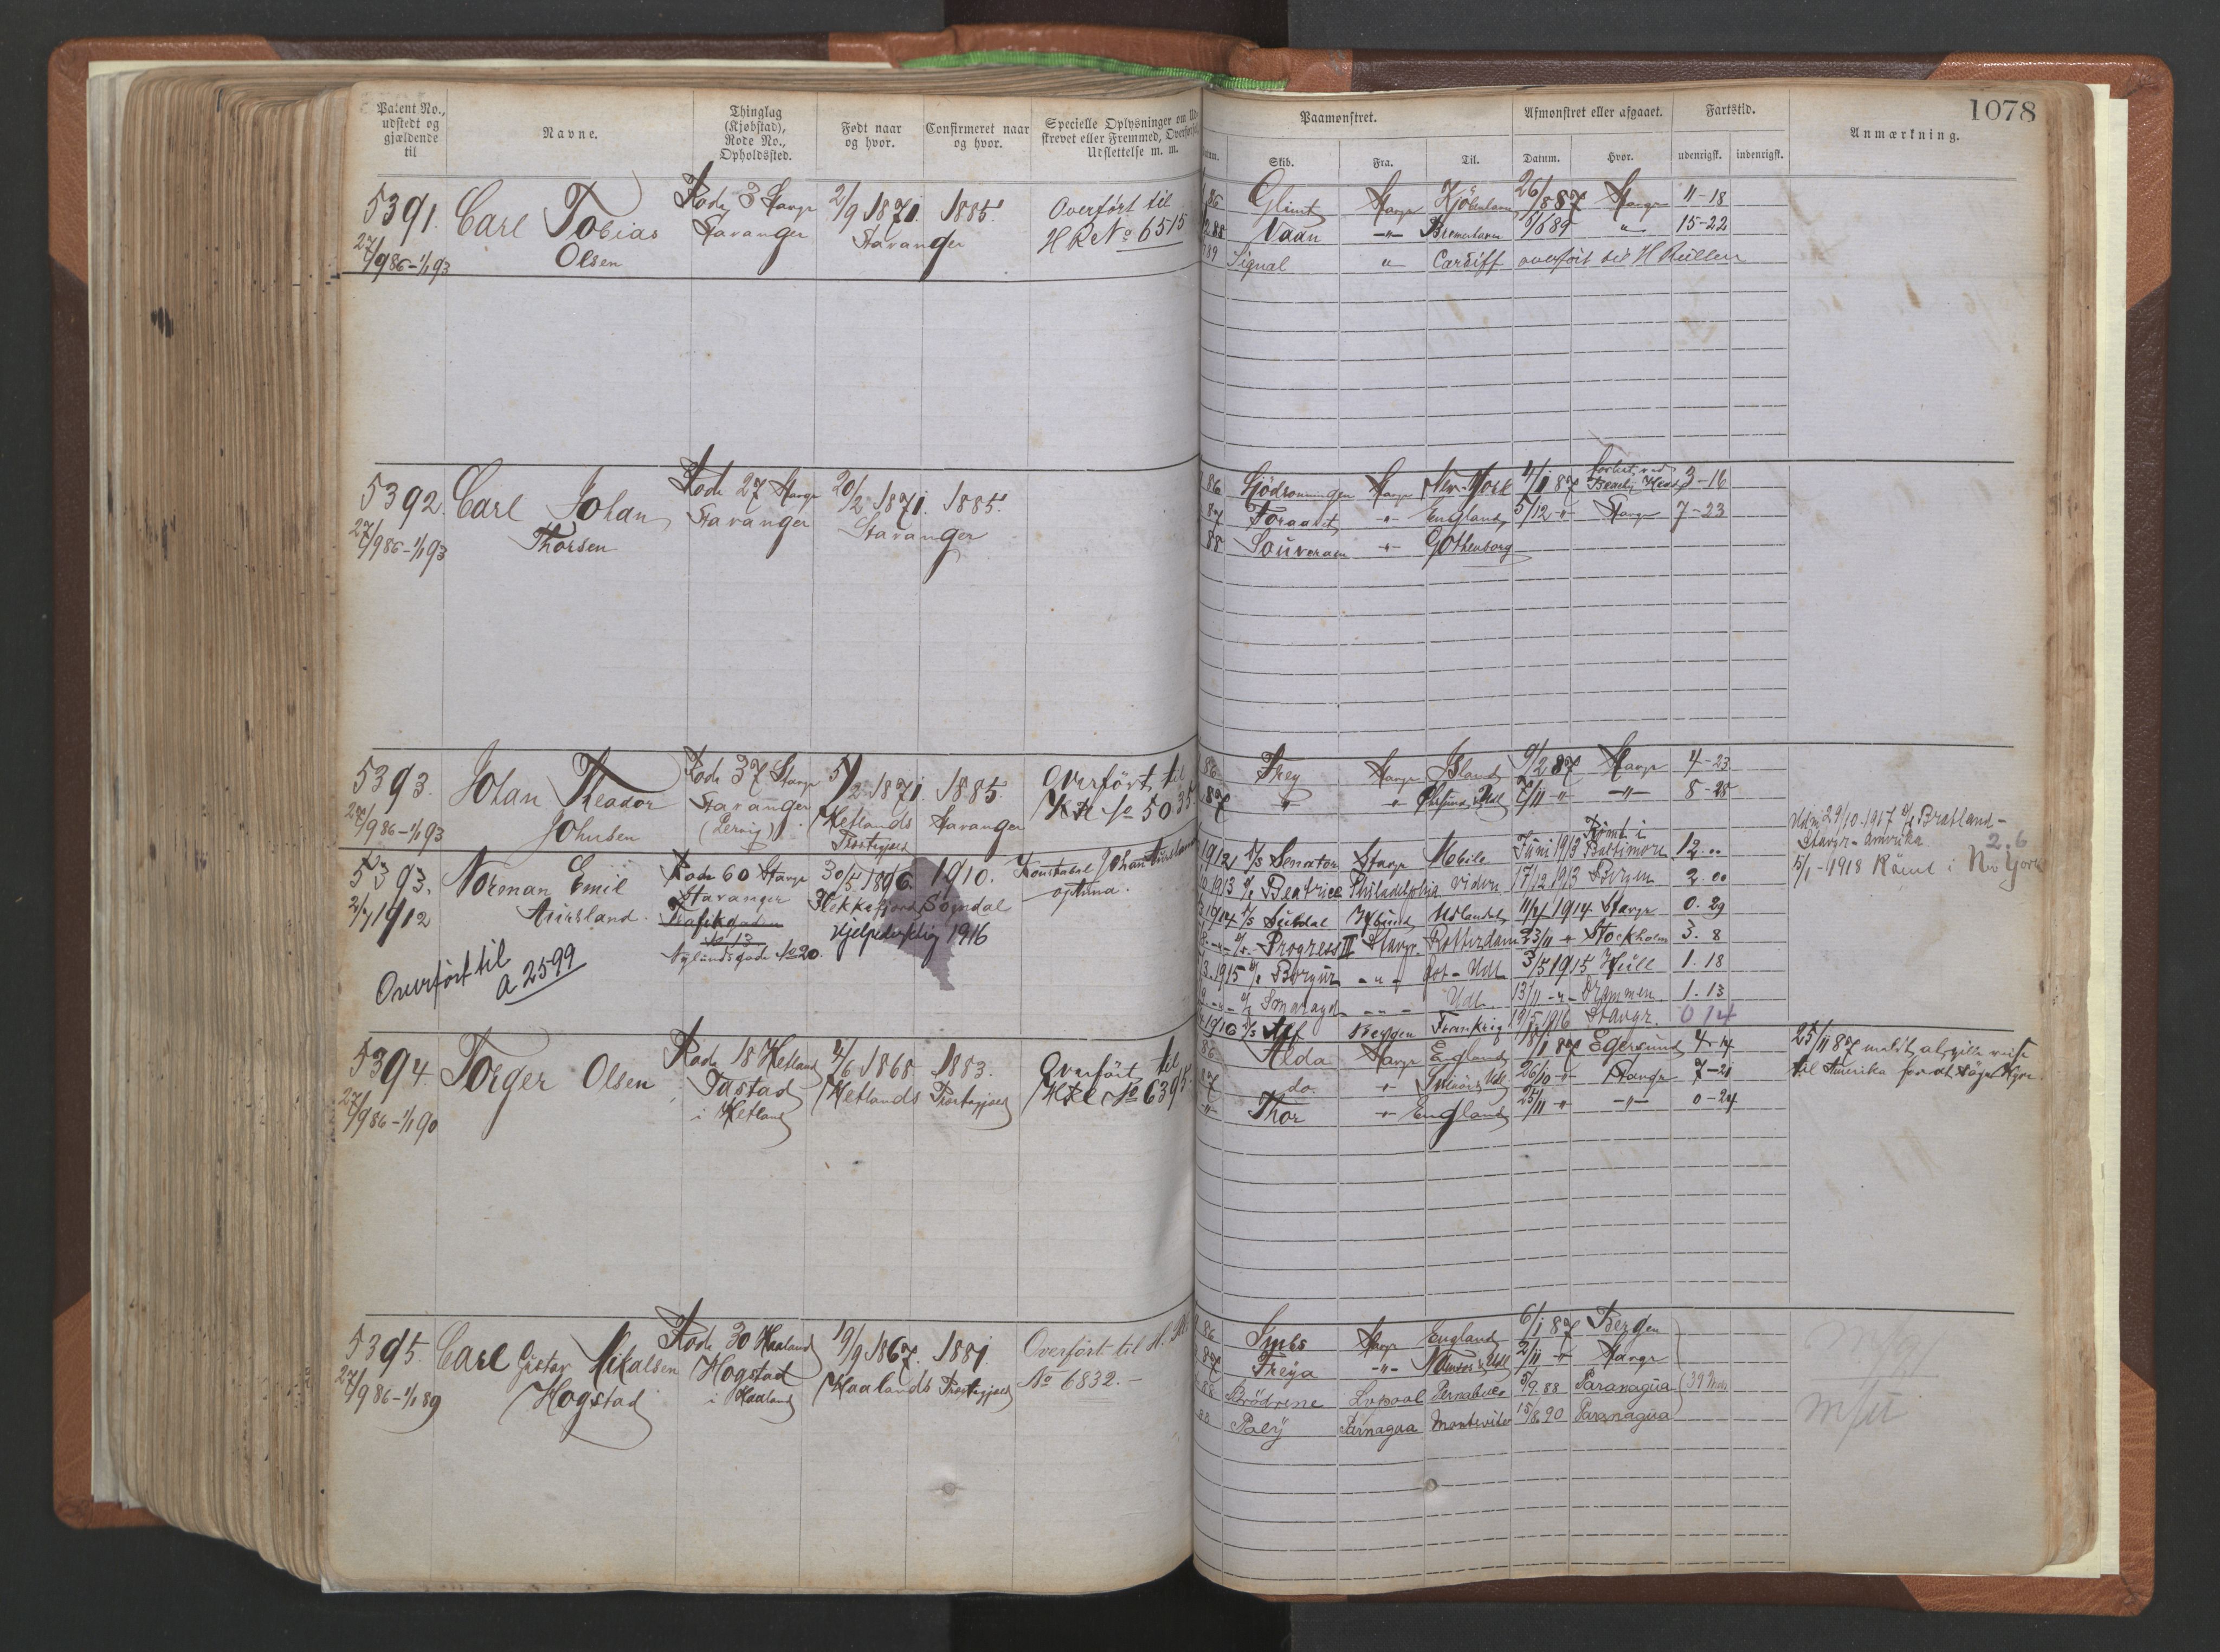 1078
Patent No., udstedt og gjældende til
Navne.
Thinglag (Kjøbstad), Rode No., Opholdssted.
Født naar og hvor.
Confirmeret naar og hvor.
Specielle Oplysninger om Ud-
skrevet eller Fremmed, Overførsel,
Udslettelse m. m.
Paamønstret.
Skib.
Fra.
Til.
Afmønstret eller afgaaet.
Datum.
Hvor.
Fartstid.
udenrigsk.
indenrigsk.
Anmærkning.
5391. Carl Tobias Rode 3 Stavgr 2/9 1871. 1885. Overført til
27/9 86-1/1 93 Olsen Stavanger Stavanger H R No 6515
86 Glint Stavgr Kjöbenhavn 26/8 87 Stavgr 11-18
88 Vaan -"- Bremerhaven 5/6 89 " 15-22
89 Signal " Cardiff overført til H Rullen
5392. Carl Johan Rode 27 Stavgr 20/2 1871. 1885.
27/9 86-1/1 93 Thorsen Stavanger Stavanger
86 Sjödronningen Stavgr New-York 4/1 87 forlist ved Beachy Head 3-16
87 Foraaret -"- England 5/12 -"- Stavgr 7-23
88 Souverain -"- Gothenborg
5393. Johan Theador Rode 37 Stavgr 5/2 1871. 1885. Overført til
27/9 86-1/1 93 Johnsen Stavanger Hetlands Stavanger No 5035
(Lervig) Præstegjeld
86 Frey Stavgr Island 9/2 87 Stavgr 4-23
87 " " Udl 7/11 -"- -"- 8-25
5393. Norman Emil Rode 60 Stavgr 30/5 1896. 1910. Johan Aursland
2/7 1912 Aursland. Stavanger Flekkefjord Sogndal
Trafikgaden No 13 Hjelpedygtig 1916
Nylundsgade No 20.
Overført til
A 2599
1912 S/S Senator Stavgr Mobile Juni 1913 Rømt i Baltimore 12.00
1913 Beatrice Philadelphia videre 17/12 1913 Bergen 2.00
1914 S/S Suldal Udlandet 11/4 1914 Stavgr 0.29
Progress II Stavgr. Rotterdam 23/11 " Stockholm 3.8
1915 Borgund -"- Udl. 3/5 1915 Hull 1.18
Smaragd -"- Udl. 13/11 -"- Drammen. 1.13
1916 S/S Alf Bergen Frankrig 19/5 1916 Stavgr. 0 14
29/10-1917 Bratland-
Stavgr-Amerika 2.6
15/1-1918 Rømt i New York
5394. Torger Olsen Rode 18 Hetland 4/6 1868. 1883. Overført til
27/9 86-1/1 90 Tastad Hetlands Præstegjeld No 6395
i Hetland
86 Alda Stavgr England 18/1 87 Egersund 4-14
87 do. " Udl 26/10 -"- Stavgr 7-21
-"- Thor -"- England 25/11 -"- -"- 0-24
25/11 87 meldt at ville reise
til Amerika for at søge Hyre.
5395. Carl Gustav Mikalsen Rode 30 Haaland 19/9 1867. 1881. Overført til
27/9 86-1/1 89 Hogstad Hogstad Haalands Præstegjeld No 6832.-
i Haaland
86 Stavgr England 6/1 87 Bergen
87 Freya -"- Udl 2/11 -"- Stavgr
88 Brödrene Lvpool Pernabuco 5/9.88 Paranagua
Paly Parnagua Montevideo 15/8 90 Paranagua